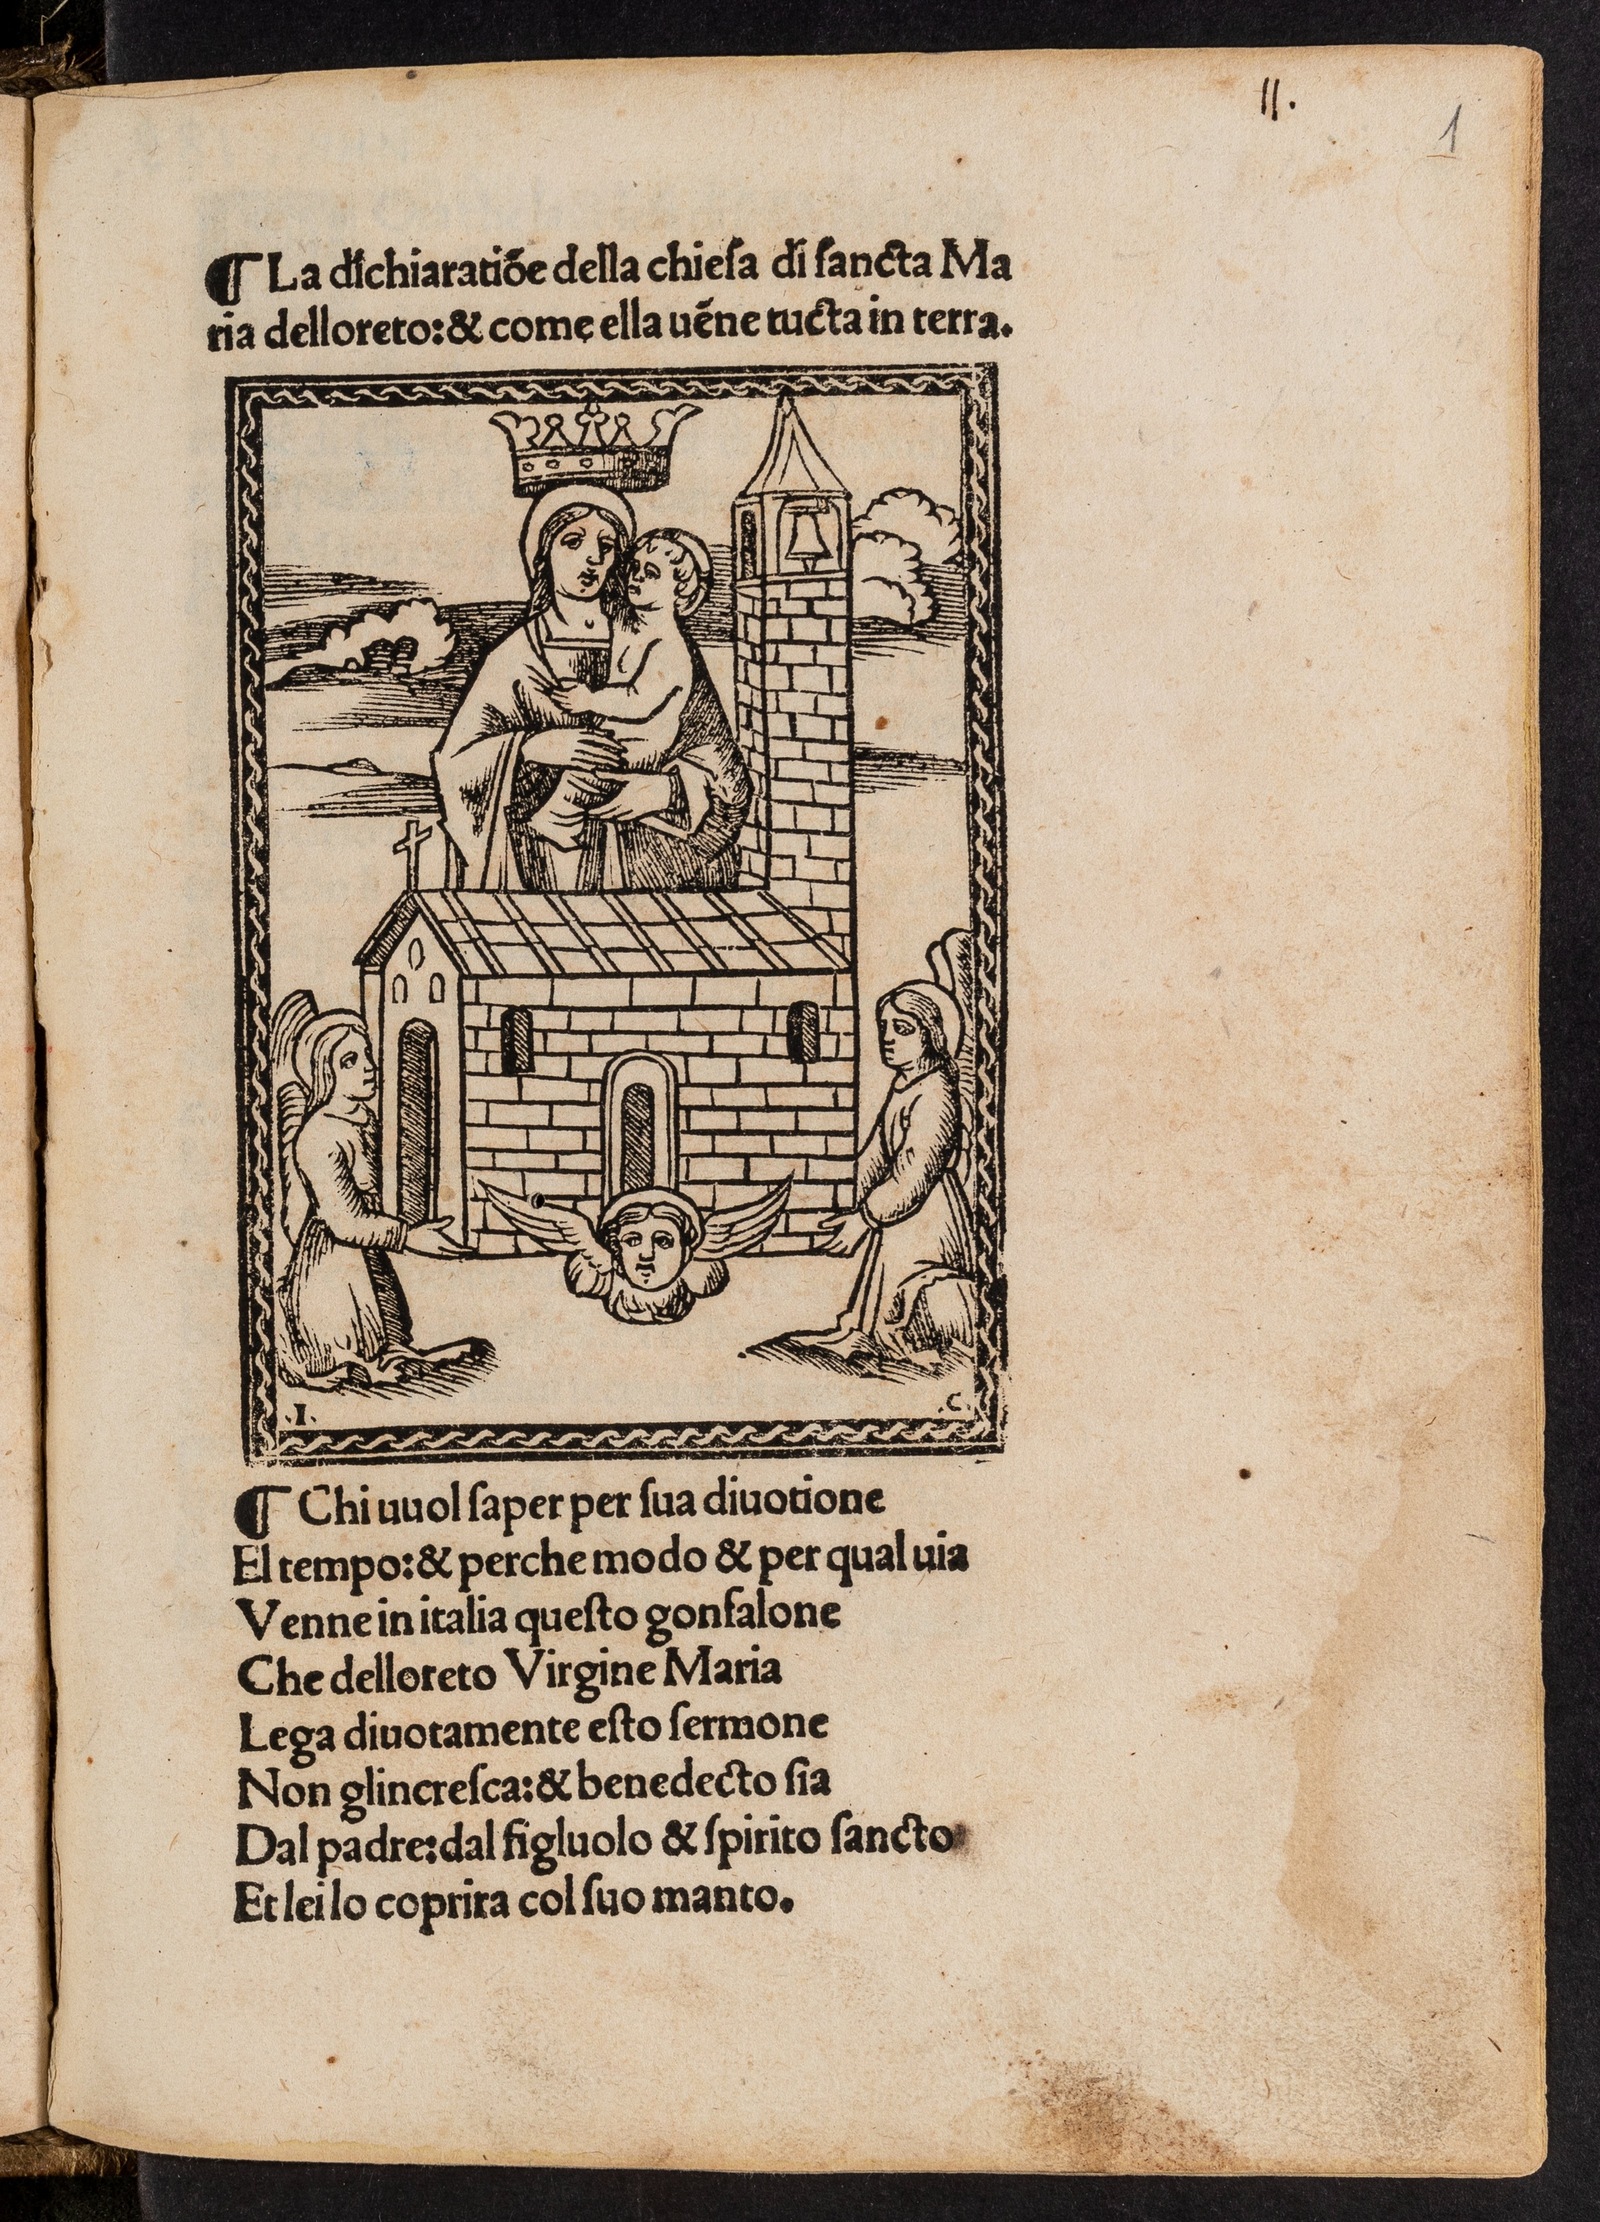 11.
1
¶ La dichiaratiõe della chieſa di ſancta Ma
ria delloreto:& come ella uẽne tucta in terra.
.I. .C.
¶ Chi uuol ſaper per ſua diuotione
El tempo:& perche modo & per qual uia
Venne in italia queſto gonfalone
Che delloreto Virgine Maria
Lega diuotamente eſto ſermone
Non glincreſca:& benedecto ſia
Dal padre:dal figluolo & ſpirito ſancto
Et lei lo coprira col ſuo manto.